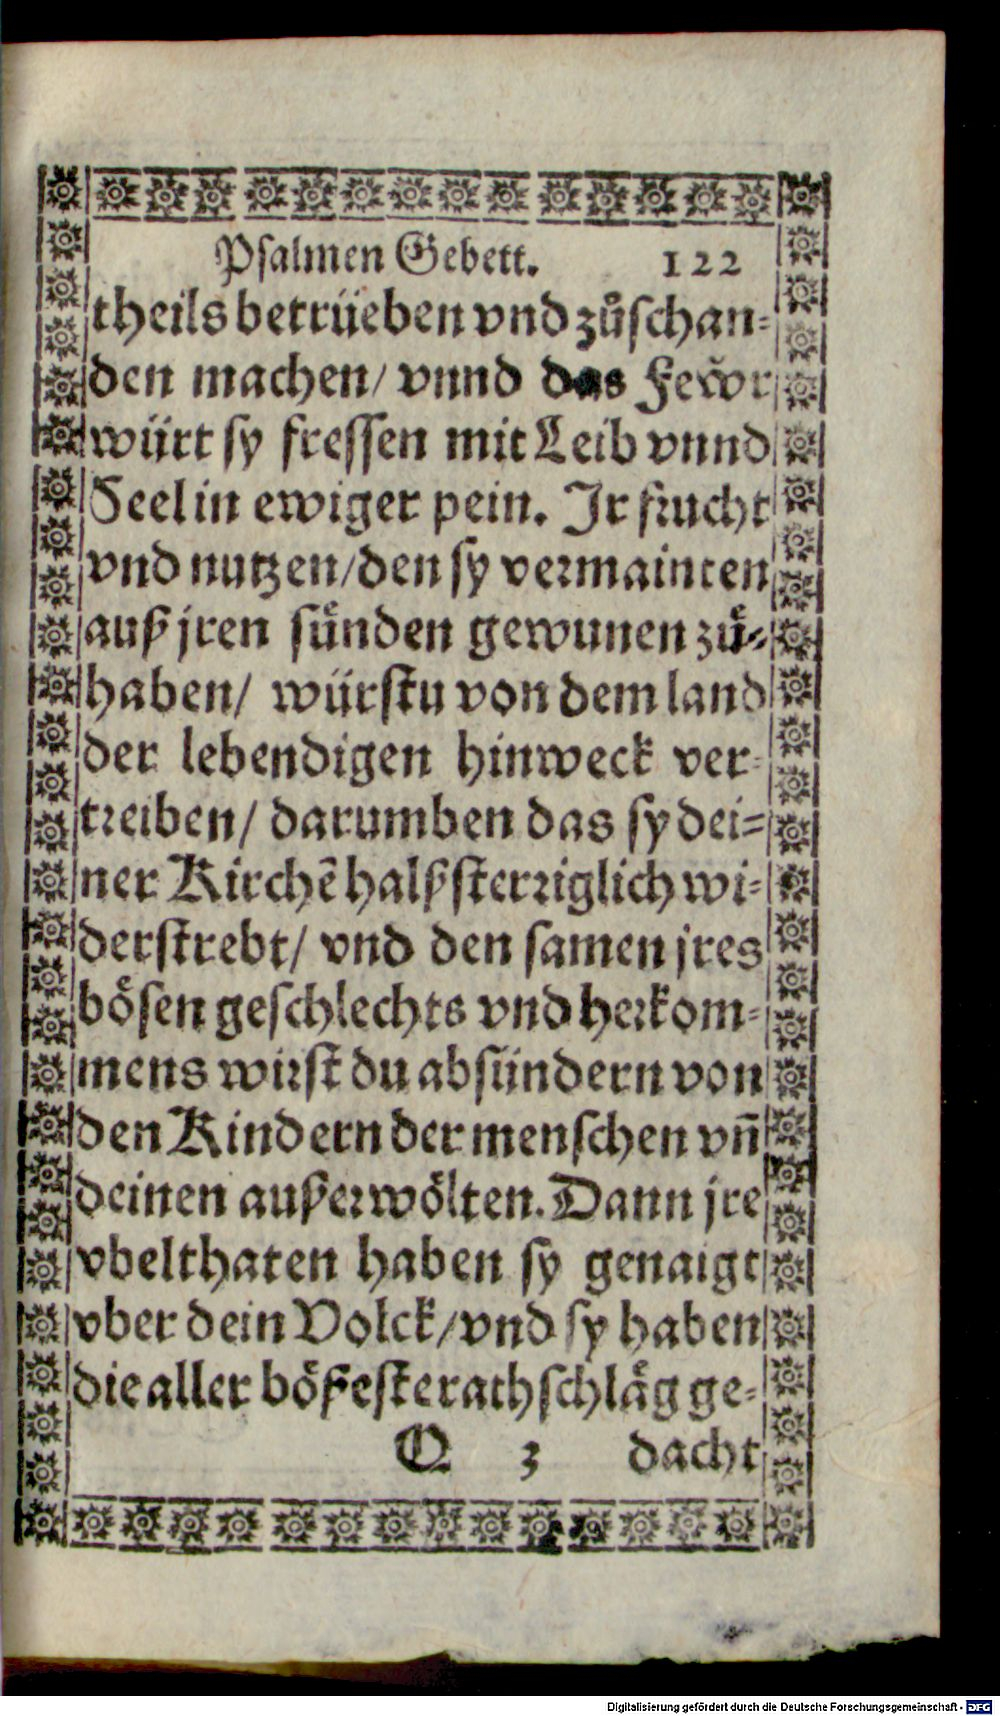 Psalmen Gebett. 122
theils betrüeben vnd zůschan-
den machen/ vnnd das Fewr
würt sy fressen mit Leib vnnd
Seel in ewiger pein. Jr frucht
vnd nutzen/den sy vermainten
auß jren sünden gewunen zů-
haben/ würstu von dem land
der lebendigen hinweck ver-
treiben/ darumben das sy dei-
ner Kirchē halßsterriglich wi-
derstrebt/ vnd den samen jres
bösen geschlechts vnd herkom-
mens wirst du absündern von
den Kindern der menschen vn̄
deinen außerwölten. Dann jre
vbelthaten haben sy genaigt
vber dein Volck/vnd sy haben
die aller bößeste rathschläg ge-
Q 3 dacht
Digitalisierung gefördert durch die Deutsche Forschungsgemeinschaft - DFG